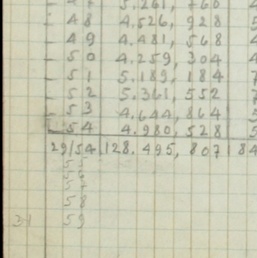 47 5.261,760 4
48 4.526,928 5
49 4.481,568 4
50 4.259,304 4
51 5.189,184 7
52 5.361,552 7
53 4.644,864 5
54 4.980,528 5
29/54 128.495,807 84
55
56
57
58
31 59